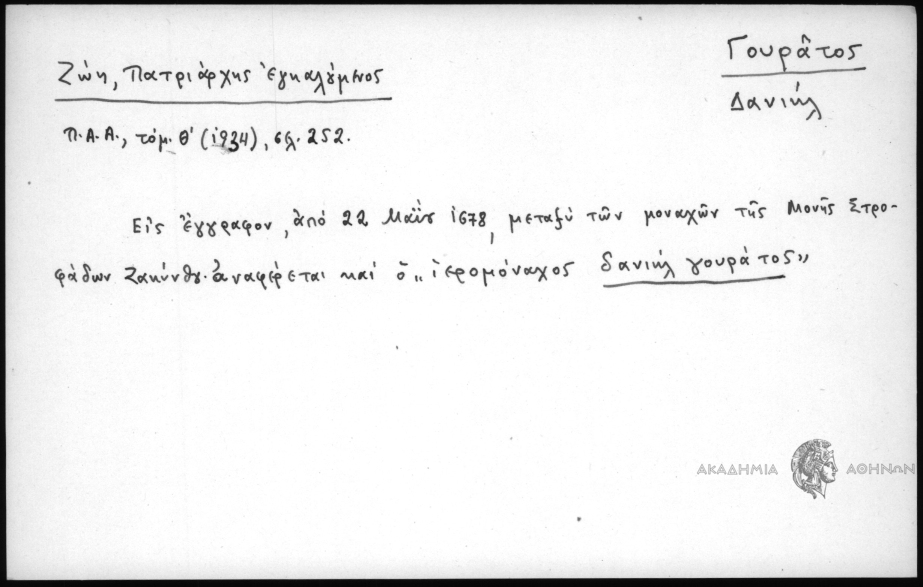 Γουρᾶτος
Δανιήλ
Ζώη, Πατριάρχης ἐγκαλούμενος
Π.Α.Α., τόμ. Θ' (1934), σελ. 252.
Εἰς ἔγγραφον, ἀπό 22 Μαΐου 1678, μεταξύ τῶν μοναχῶν τῆς Μονῆς Στρο-
φάδων Ζακύνθου ἀναφέρεται καί ὁ „ἱερομόναχος δανιήλ γουράτος"
ΑΚΑΔΗΜΙΑ ΑΘΗΝΩΝ